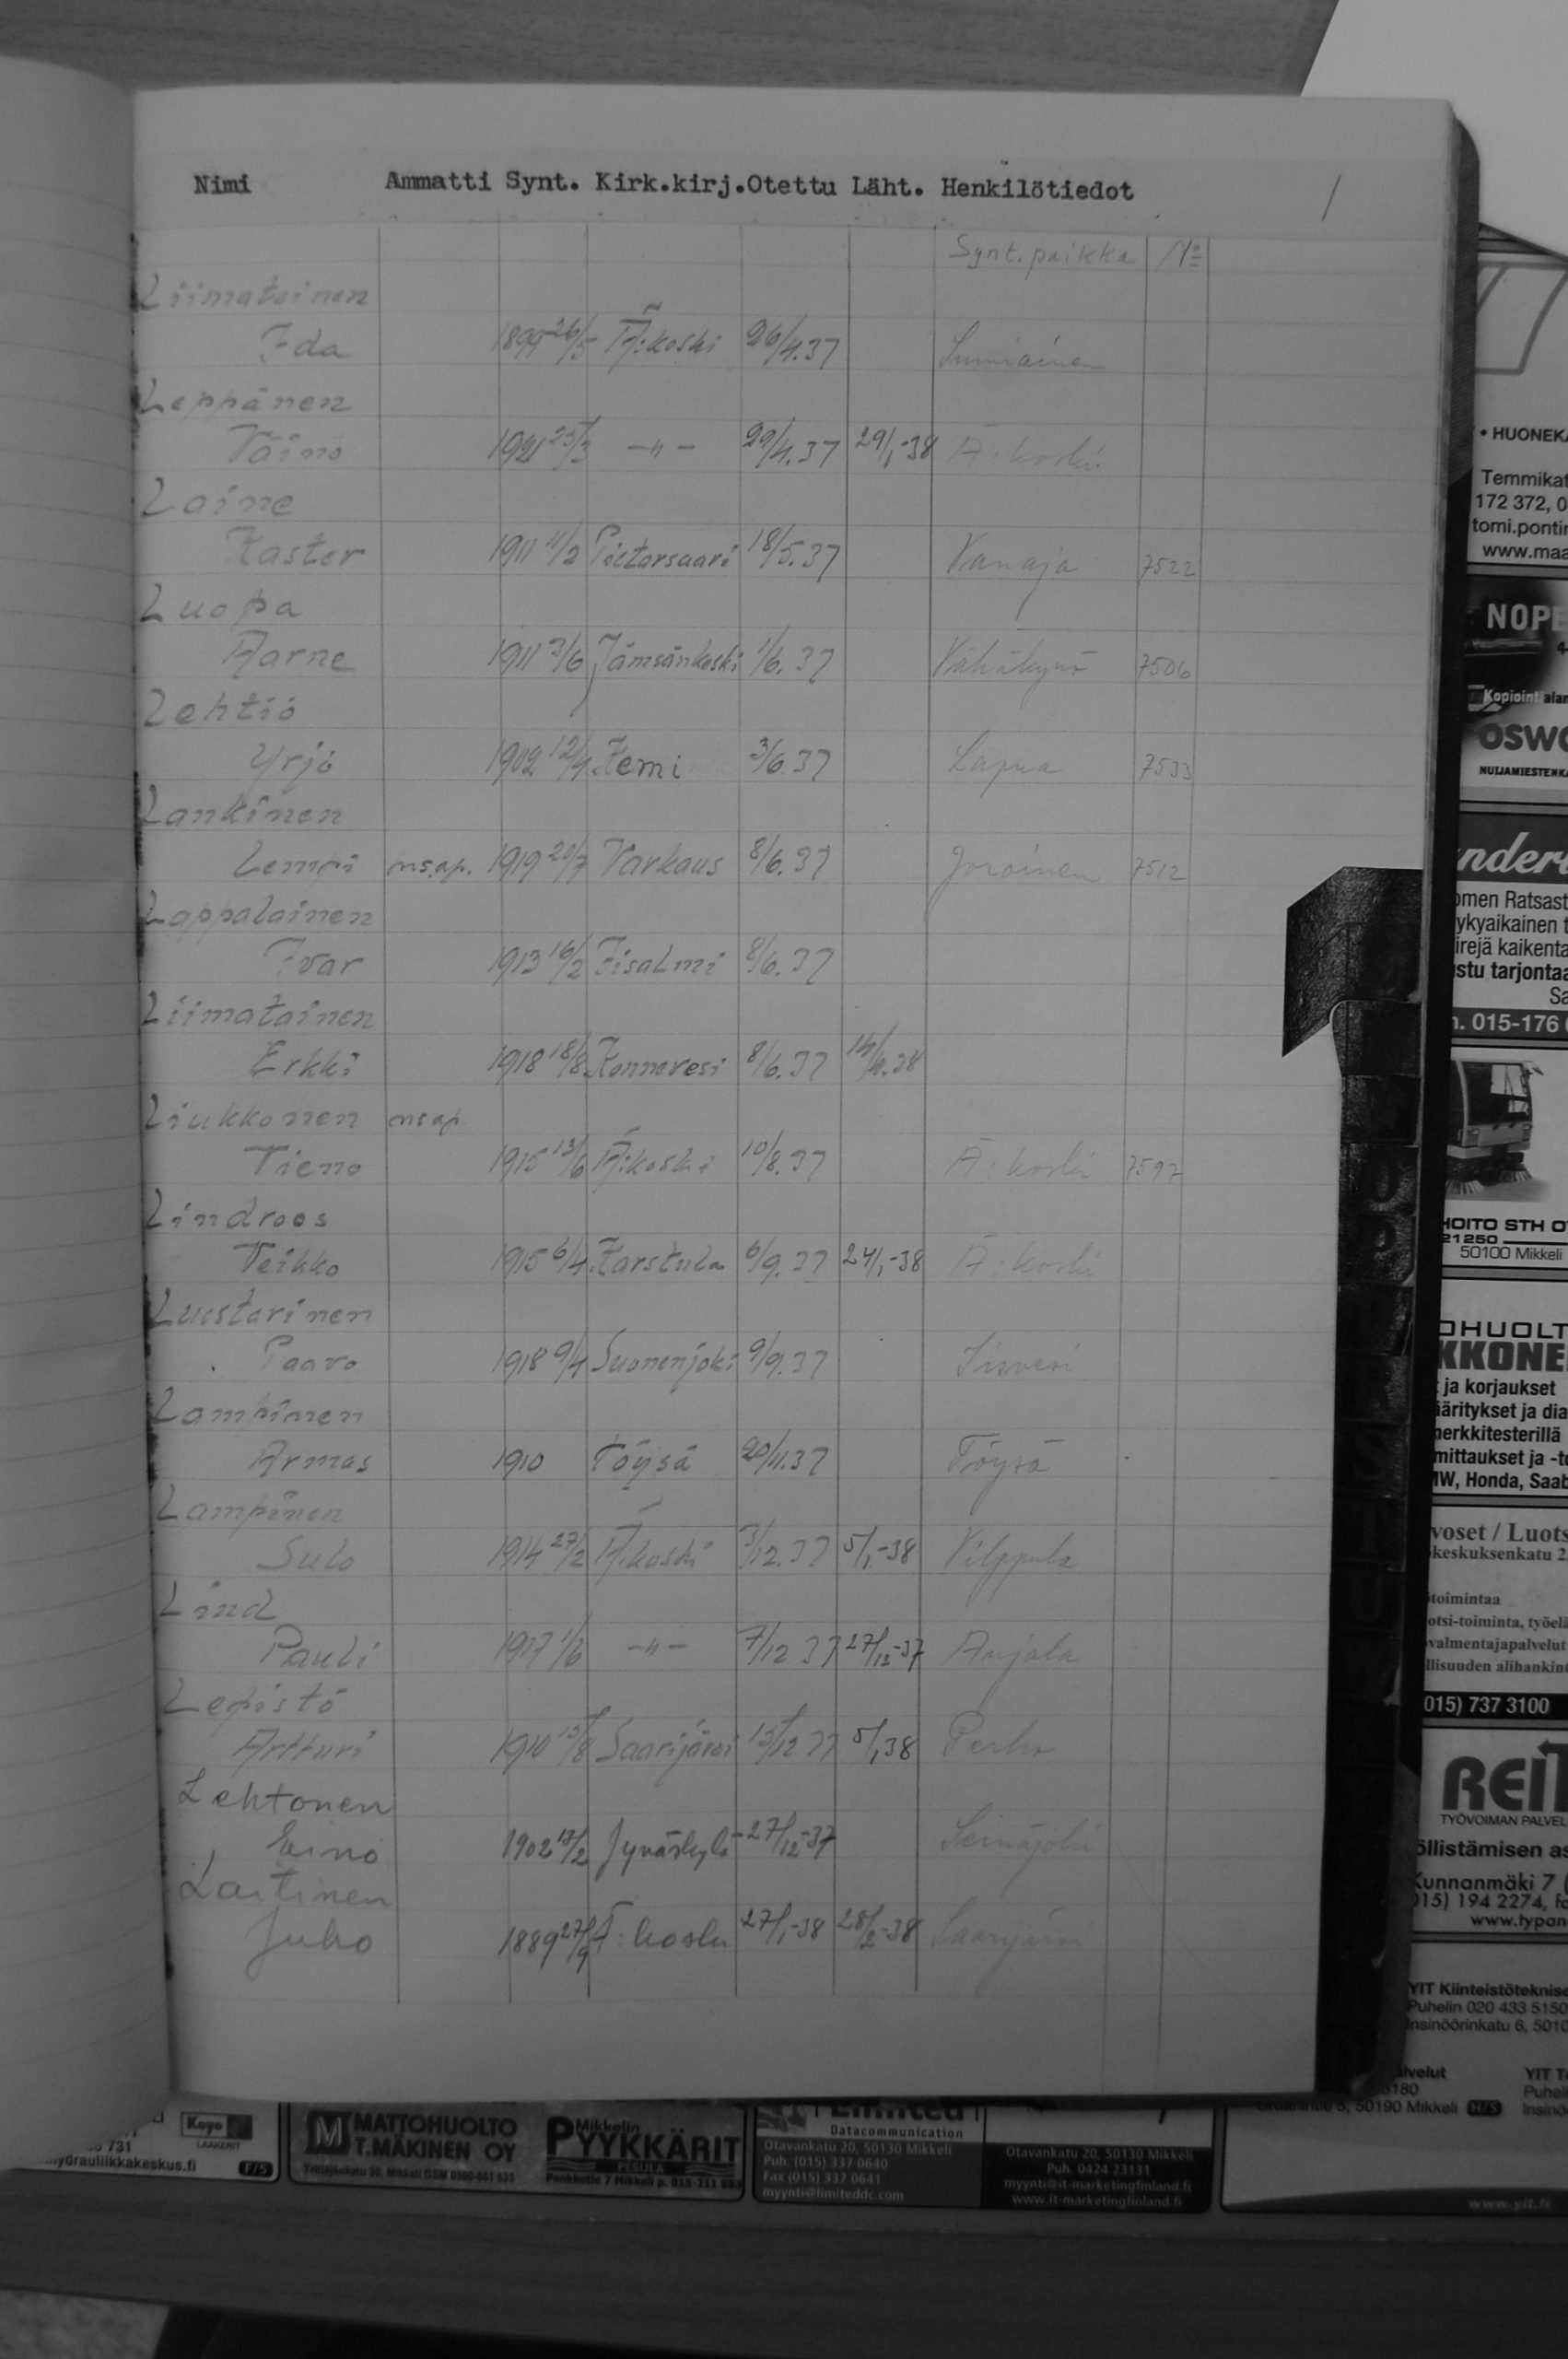 Nimi Ammatti Synt. Kirk.kirj. Otettu Läht. Henkilötiedot 1
Synt. paikka No
Liimatainen
Ida 1899 26/5 Ä:koski 26/4.37 Sumiainen
Leppänen
Väinö 1921 25/3 -"- 29/4.37 29/1-38 Ä:koski
Laine
Kaster 1911 11/2 Pietarsaari 18/5.37 Vanaja 7522
Luopa
Aarne 1911 3/6 Jämsänkoski 1/6.37 Vähäkyrö 7506
Lehtiö
Yrjö 1902 12/4 Kemi 3/6.37 Lapua 7533
Lankinen
Lempi ns.ap. 1919 20/7 Varkaus 8/6.37 Joroinen 7512
Lappalainen
Ivar 1913 16/2 Iisalmi 8/6.37
Liimatainen
Erkki 1918 18/8 Konnevesi 8/6.37 14/4.38
Liukkonen ns.ap.
Tieno 1915 13/6 Ä:koski 10/8.37 Ä:koski 7597
Lindroos
Veikko 1915 6/4 Karstula 6/9.37 24/1-38 Ä:koski
Luostarinen
Paavo 1918 9/4 Suonenjoki 9/9.37 Iisvesi
Lampinen
Armas 1910 Töysä 20/11.37 Töysä
Lampinen
Sulo 1914 27/2 Ä:koski 3/12.37 5/1-38 Vilppula
Lind
Pauli 1917 1/6 -"- 7/12 37 27/12-37 Anjala
Lepistö
Artturi 1910 15/8 Saarijärvi 15/12 37 5/1 38 Perho
Lehtonen
Eino 1902 17/2 Jyväskylä 27/12-37 Seinäjoki
Laitinen
Juho 1889 27/9 Ä:koski 27/1-38 28/2-38 Saarijärvi
• HUONEK
Temmikat
172 372, 0
tomi.pontin
www.maa
NOPE
Kopioint alan
OSWO
NUIJAMIESTENK
nder
omen Ratsast
ykyaikainen t
irejä kaikenta
stu tarjontaa
Sa
. 015-176
HOITO STH O
21250
50100 Mikkeli
OHUOLT
KKONE
t ja korjaukset
ääritykset ja dia
nerkkitesterillä
mittaukset ja -to
MW, Honda, Saab
voset / Luots
keskuksenkatu 2
toimintaa
otsi-toiminta, työelä
valmentajapalvelut
llisuuden alihankint
015) 737 3100
REIT
TYÖVOIMAN PALVEL
öllistämisen as
Kunnanmäki 7
015) 194 2274, fa
www.typan
YIT Kiinteistöteknise
Puhelin 020 433 5150
Insinöörinkatu 6, 5010
lvelut YIT T
3180 Puheli
5, 50190 Mikkeli H/5 Insinö
Koyo
LAAKERIT
731
ydrauliikkakeskus.fi F/5
M MATTOHUOLTO
T.MÄKINEN OY
Yrittäjänkatu 30, Mikkeli GSM 0500-651 533
Mikkelin
PYYKKÄRIT
PESULA
Pankkotie 7 Mikkeli p. 015-211 883
Limited
Datacommunication
Otavankatu 20, 50130 Mikkeli
Puh. (015) 337 0640
Fax (015) 337 0641
myynti@limiteddc.com
Otavankatu 20, 50130 Mikkeli
Puh. 0424 23131
myynti@it-marketingfinland.fi
www.it-marketingfinland.fi
www.yit.fi